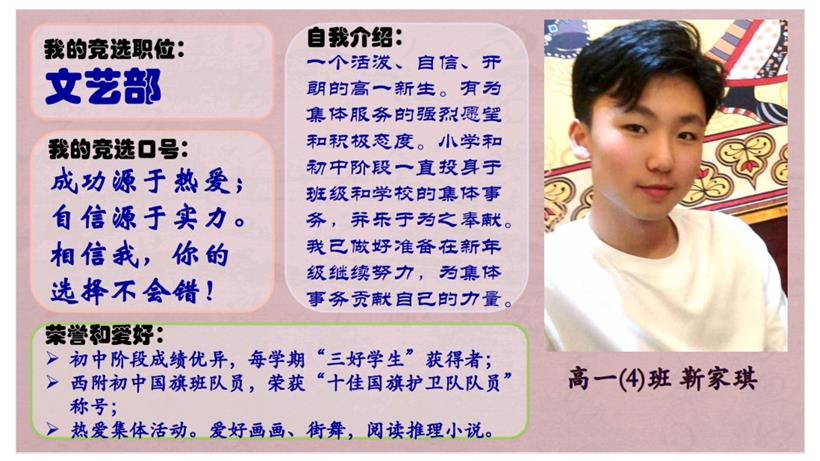 我的竞选职位：
文艺部
我的竞选口号：
成功源于热爱；
自信源于实力。
相信我，你的
选择不会错！
自我介绍：
一个活泼、自信、开
朗的高一新生。有为
集体服务的强烈愿望
和积极态度。小学和
初中阶段一直投身于
班级和学校的集体事
务，并乐于为之奉献。
我已做好准备在新年
级继续努力，为集体
事务贡献自己的力量。
荣誉和爱好：
➢ 初中阶段成绩优异，每学期“三好学生”获得者；
➢ 西附初中国旗班队员，荣获“十佳国旗护卫队队员”
称号；
➢ 热爱集体活动。爱好画画、街舞，阅读推理小说。
高一(4)班 靳家琪